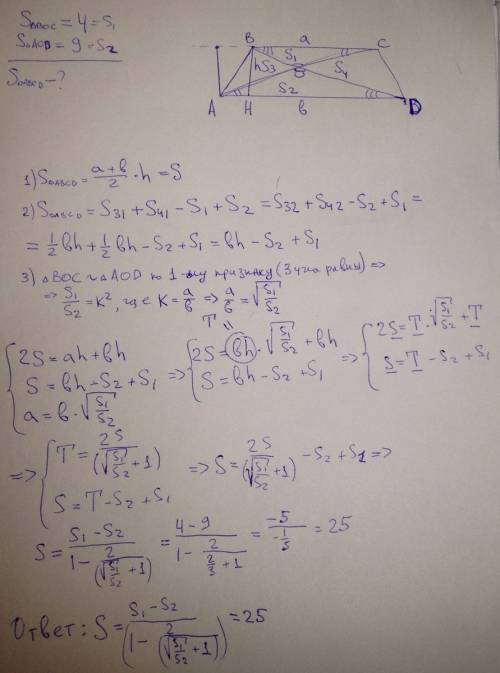 S△BOC = 4 = S₁
S△AOD = 9 = S₂
S▱ABCD - ?
B a C
S₁
hS₃ S₄
S₂
A H в D
1) S▱ABCD = (a+в)/2 · h = S
2) S▱ABCD = S₃₁ + S₄₁ - S₁ + S₂ = S₃₂ + S₄₂ - S₂ + S₁ =
= 1/2 вh + 1/2 вh - S₂ + S₁ = вh - S₂ + S₁
3) △BOC ~ △AOD по 1-му признаку (3 угла равны) =>
=> S₁/S₂ = K², где K = a/в => a/в = √(S₁/S₂)
T
{ 2S = ah + вh
S = вh - S₂ + S₁
a = в · √(S₁/S₂)
=> { 2S = вh · √(S₁/S₂) + вh
S = вh - S₂ + S₁
=> { 2S = T · √(S₁/S₂) + T
S = T - S₂ + S₁
=> { T = 2S/(√(S₁/S₂) + 1)
S = T - S₂ + S₁
=> S = 2S/(√(S₁/S₂) + 1) - S₂ + S₁ =>
S = (S₁ - S₂)/(1 - 2/(√(S₁/S₂) + 1)) = (4 - 9)/(1 - 2/(2/3 + 1)) = -5/(-1/5) = 25
Ответ: S = (S₁ - S₂)/(1 - 2/(√(S₁/S₂) + 1)) = 25